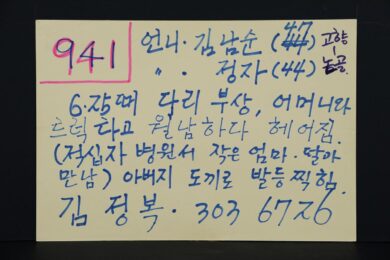 941 언니·김남순 (47) 고향-논골
〃 · 정자 (44)
6·25때 다리 부상, 어머니와
트럭 타고 월남하다 헤어짐.
(적십자 병원서 작은 엄마·딸아
만남) 아버지 도끼로 발등 찍힘.
김정복· 303 6726